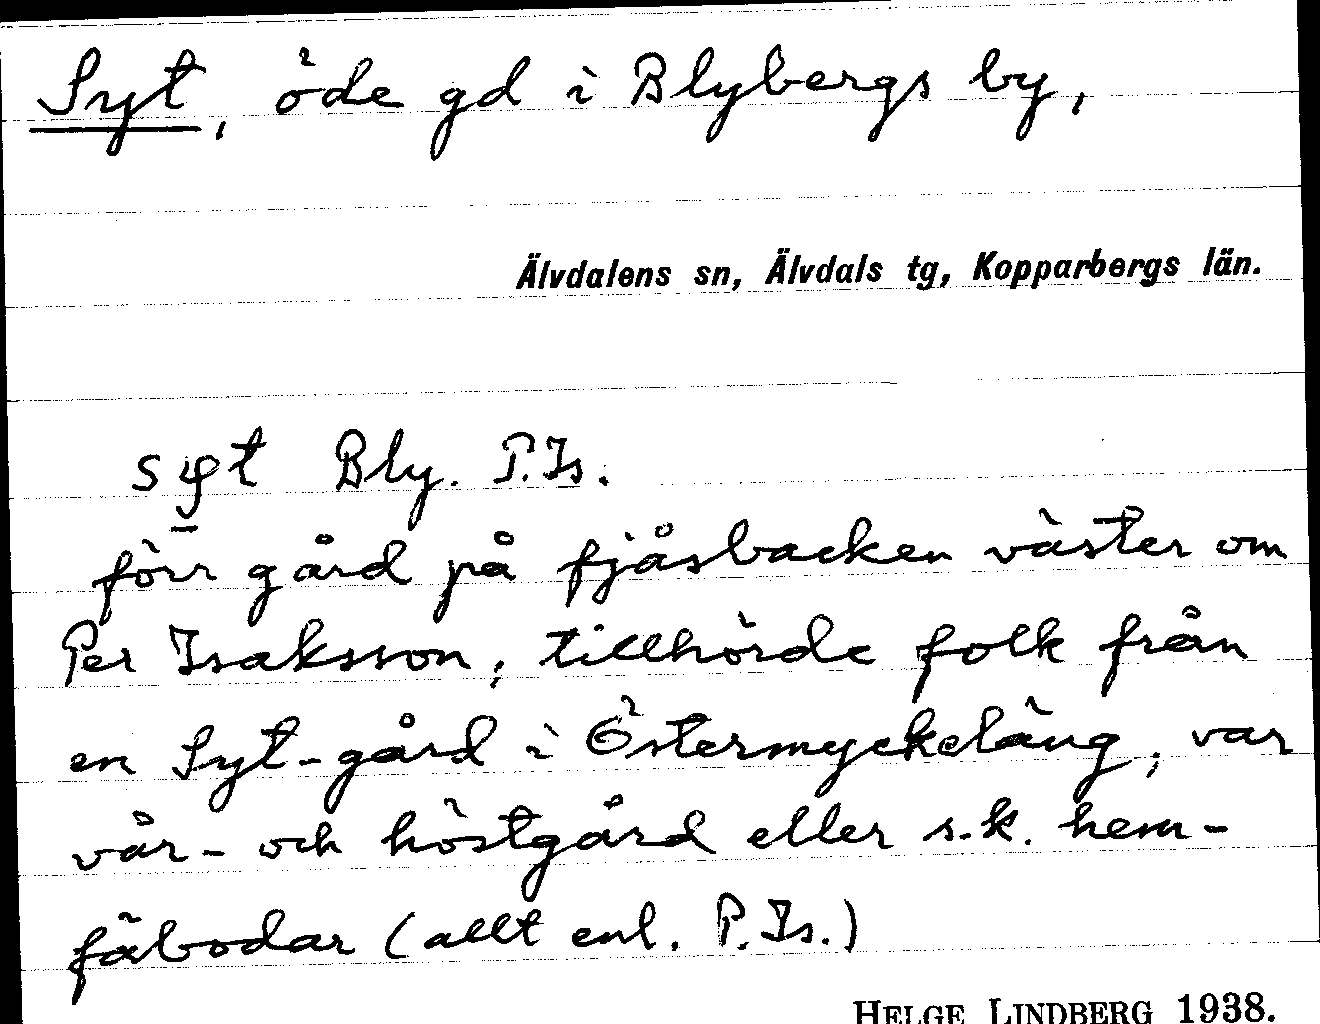 Syt, öde gd i Blybergs by,
Älvdalens sn, Älvdals tg, Kopparbergs län.
Bly. P.Is.
förr gård på fjåsbacken väster om
Per Isaksson; tillhörde folk från
en Syt-gård i Östermyckeläng; var
vår- och höstgård eller s.k. hem-
fäbodar (allt enl. P.Is.)
HELGE LINDBERG 1938.